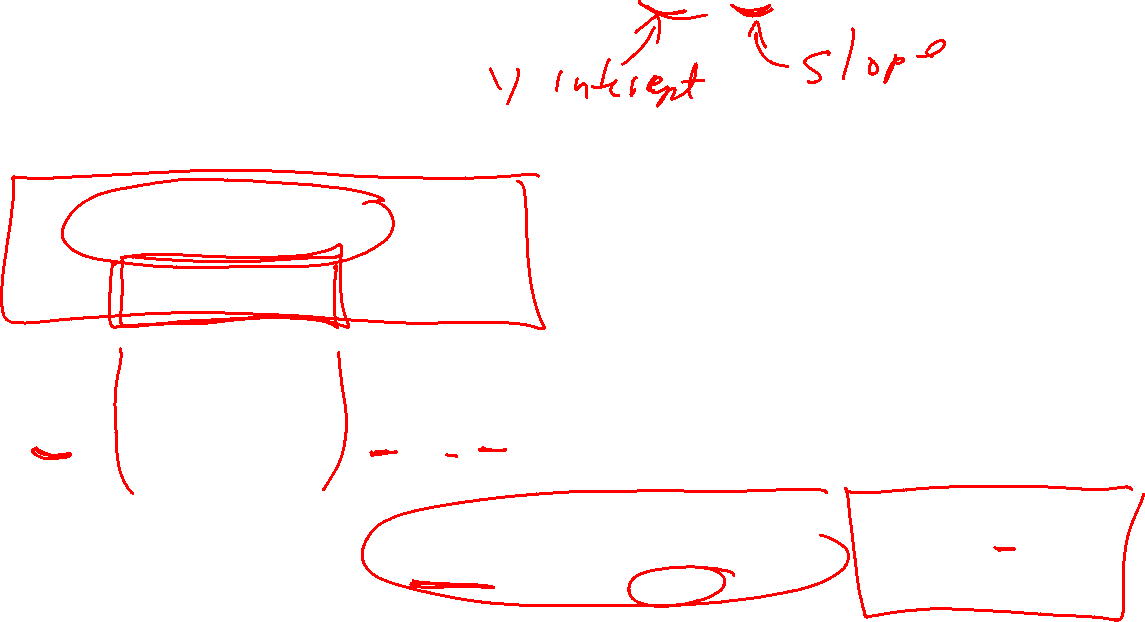 y intercept slope